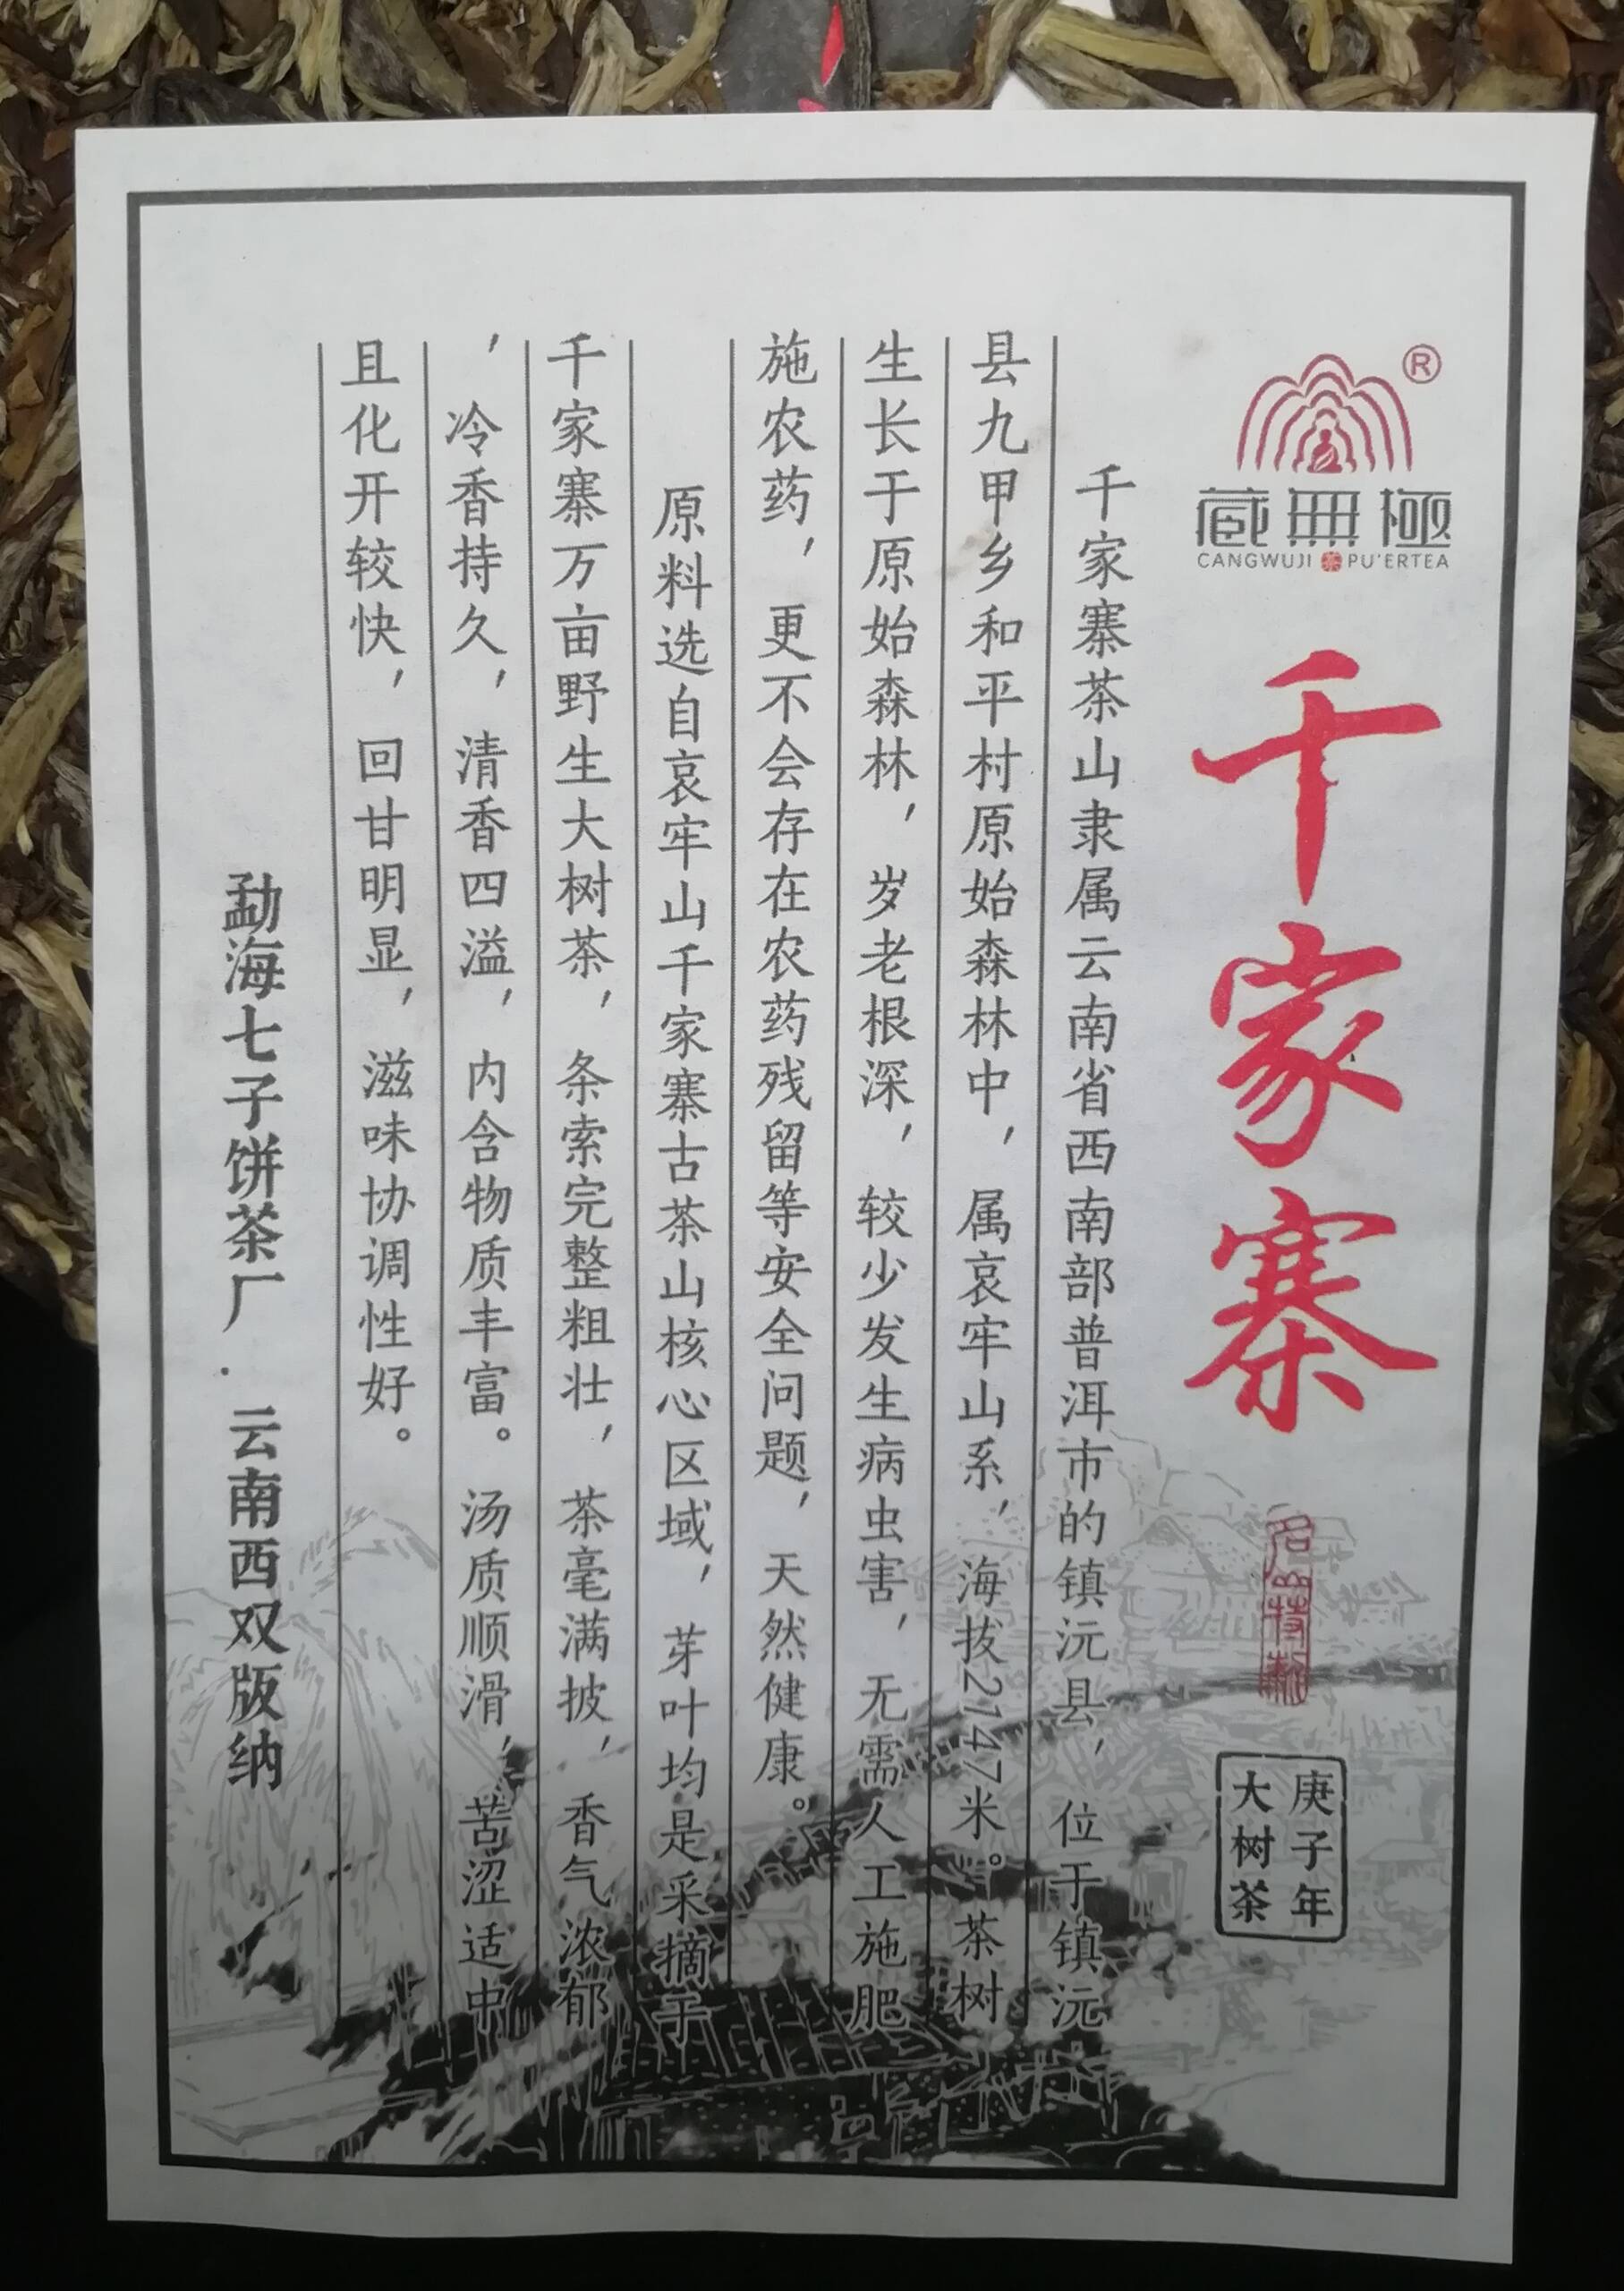 藏無極
®
CANGWUJI 茶 PU'ERTEA
千家寨
名山特制
庚子年
大树茶
千家寨茶山隶属云南省西南部普洱市的镇沅县，位于镇沅
县九甲乡和平村原始森林中，属哀牢山系，海拔2147米。茶树
生长于原始森林，岁老根深，较少发生病虫害，无需人工施肥
施农药，更不会存在农药残留等安全问题，天然健康。
原料选自哀牢山千家寨古茶山核心区域，芽叶均是采摘于
千家寨万亩野生大树茶，条索完整粗壮，茶毫满披，香气浓郁
，冷香持久，清香四溢，内含物质丰富。汤质顺滑，苦涩适中
且化开较快，回甘明显，滋味协调性好。
勐海七子饼茶厂.云南西双版纳